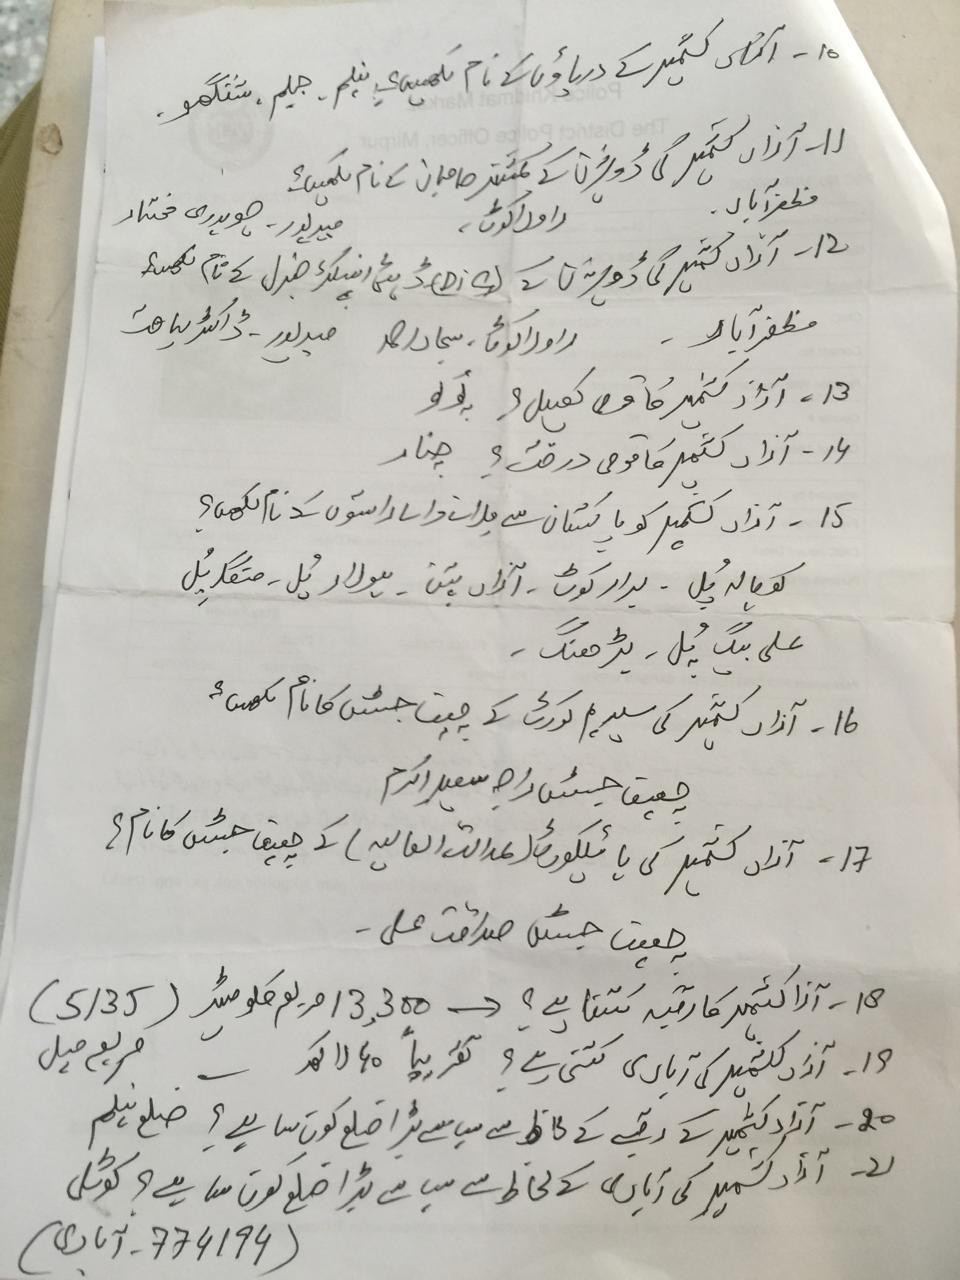 10- آزاد کشمیر کے دریاؤں کے نام لکھیں؟ نیلم۔ جہلم۔
11- آزاد کشمیر کی ڈویژن کے کمشنر صاحبان کے نام لکھیں؟
مظفرآباد۔ راولاکوٹ، میرپور۔ چوہدری مختار
12- آزاد کشمیر کی ڈویژن کے (DIG) ڈپٹی انسپکٹر جنرل کے نام لکھیں؟
مظفرآباد۔ راولاکوٹ، سجاد میرپور۔ ڈاکٹر لیاقت
13- آزاد کشمیر کا قومی کھیل؟ پولو
14- آزاد کشمیر کا قومی درخت؟ چنار
15- آزاد کشمیر کو پاکستان سے ملانے والے راستوں کے نام لکھیں؟
کوہالہ پُل ۔ برار کوٹ ۔ آزاد پتن ۔ ہولاڑ پُل ۔ منگلا پُل
علی بیگ پُل ۔ بڑھنگ ۔
16- آزاد کشمیر کی سپریم کورٹ کے چیف جسٹس کا نام لکھیں؟
چیف جسٹس راجہ سعید اکرم
17- آزاد کشمیر کی ہائیکورٹ (عدالت العالیہ) کے چیف جسٹس کا نام؟
چیف جسٹس صداقت علی ۔
18- آزاد کشمیر کا رقبہ کتنا ہے؟ → 13,300 مربع کلومیٹر (5135)
مربع میل
19- آزاد کشمیر کی آبادی کتنی ہے؟ تقریباً 40 لاکھ
20- آزاد کشمیر کے رقبے کے لحاظ سے سب سے بڑا ضلع کون سا ہے؟ ضلع نیلم
21- آزاد کشمیر کی آبادی کے لحاظ سے سب سے بڑا ضلع کون سا ہے؟ کوٹلی
(774194۔ آبادی)